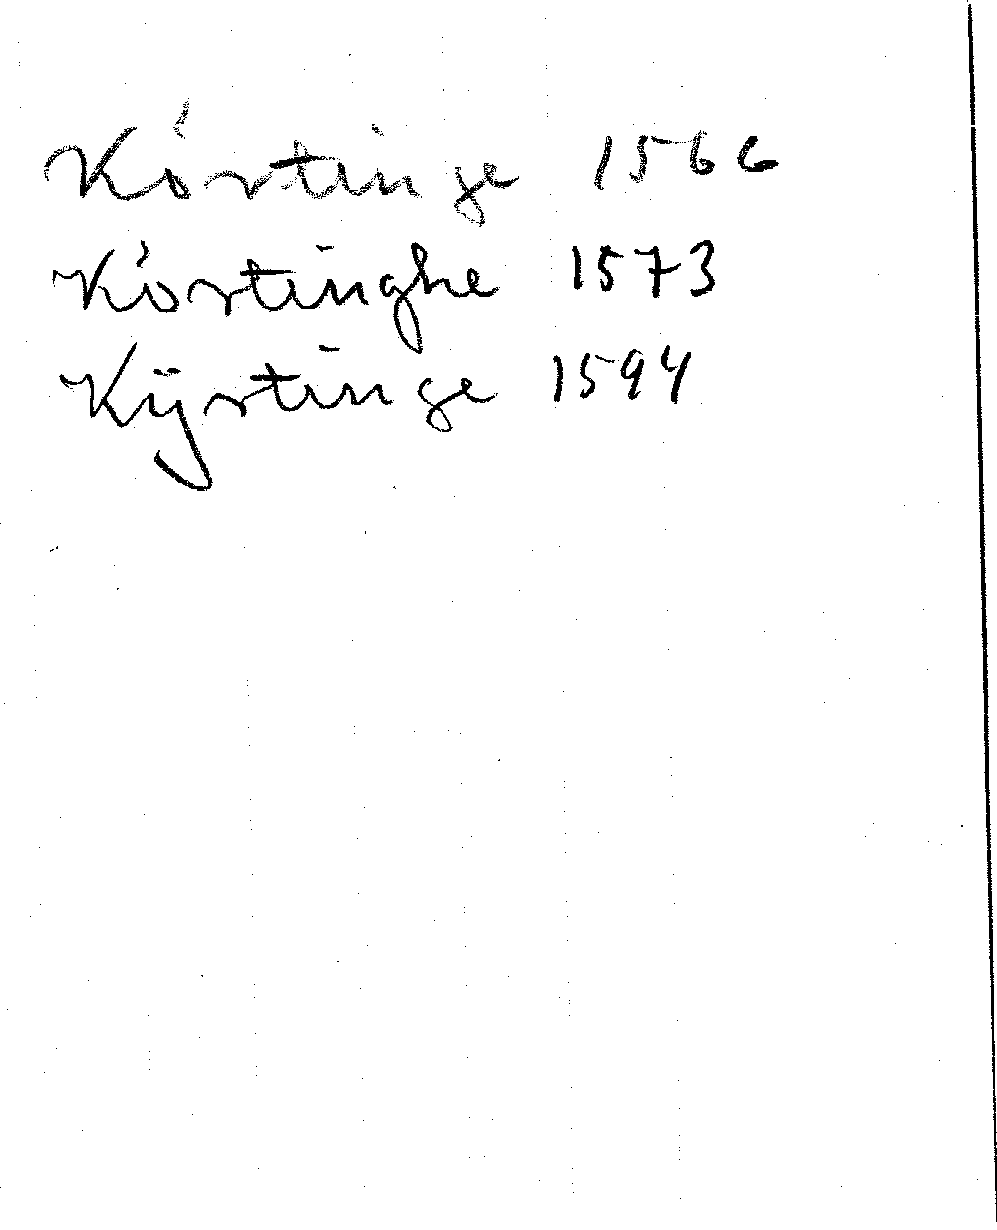 Kórtinge 1566
Kórtinghe 1573
Kÿrtinge 1594